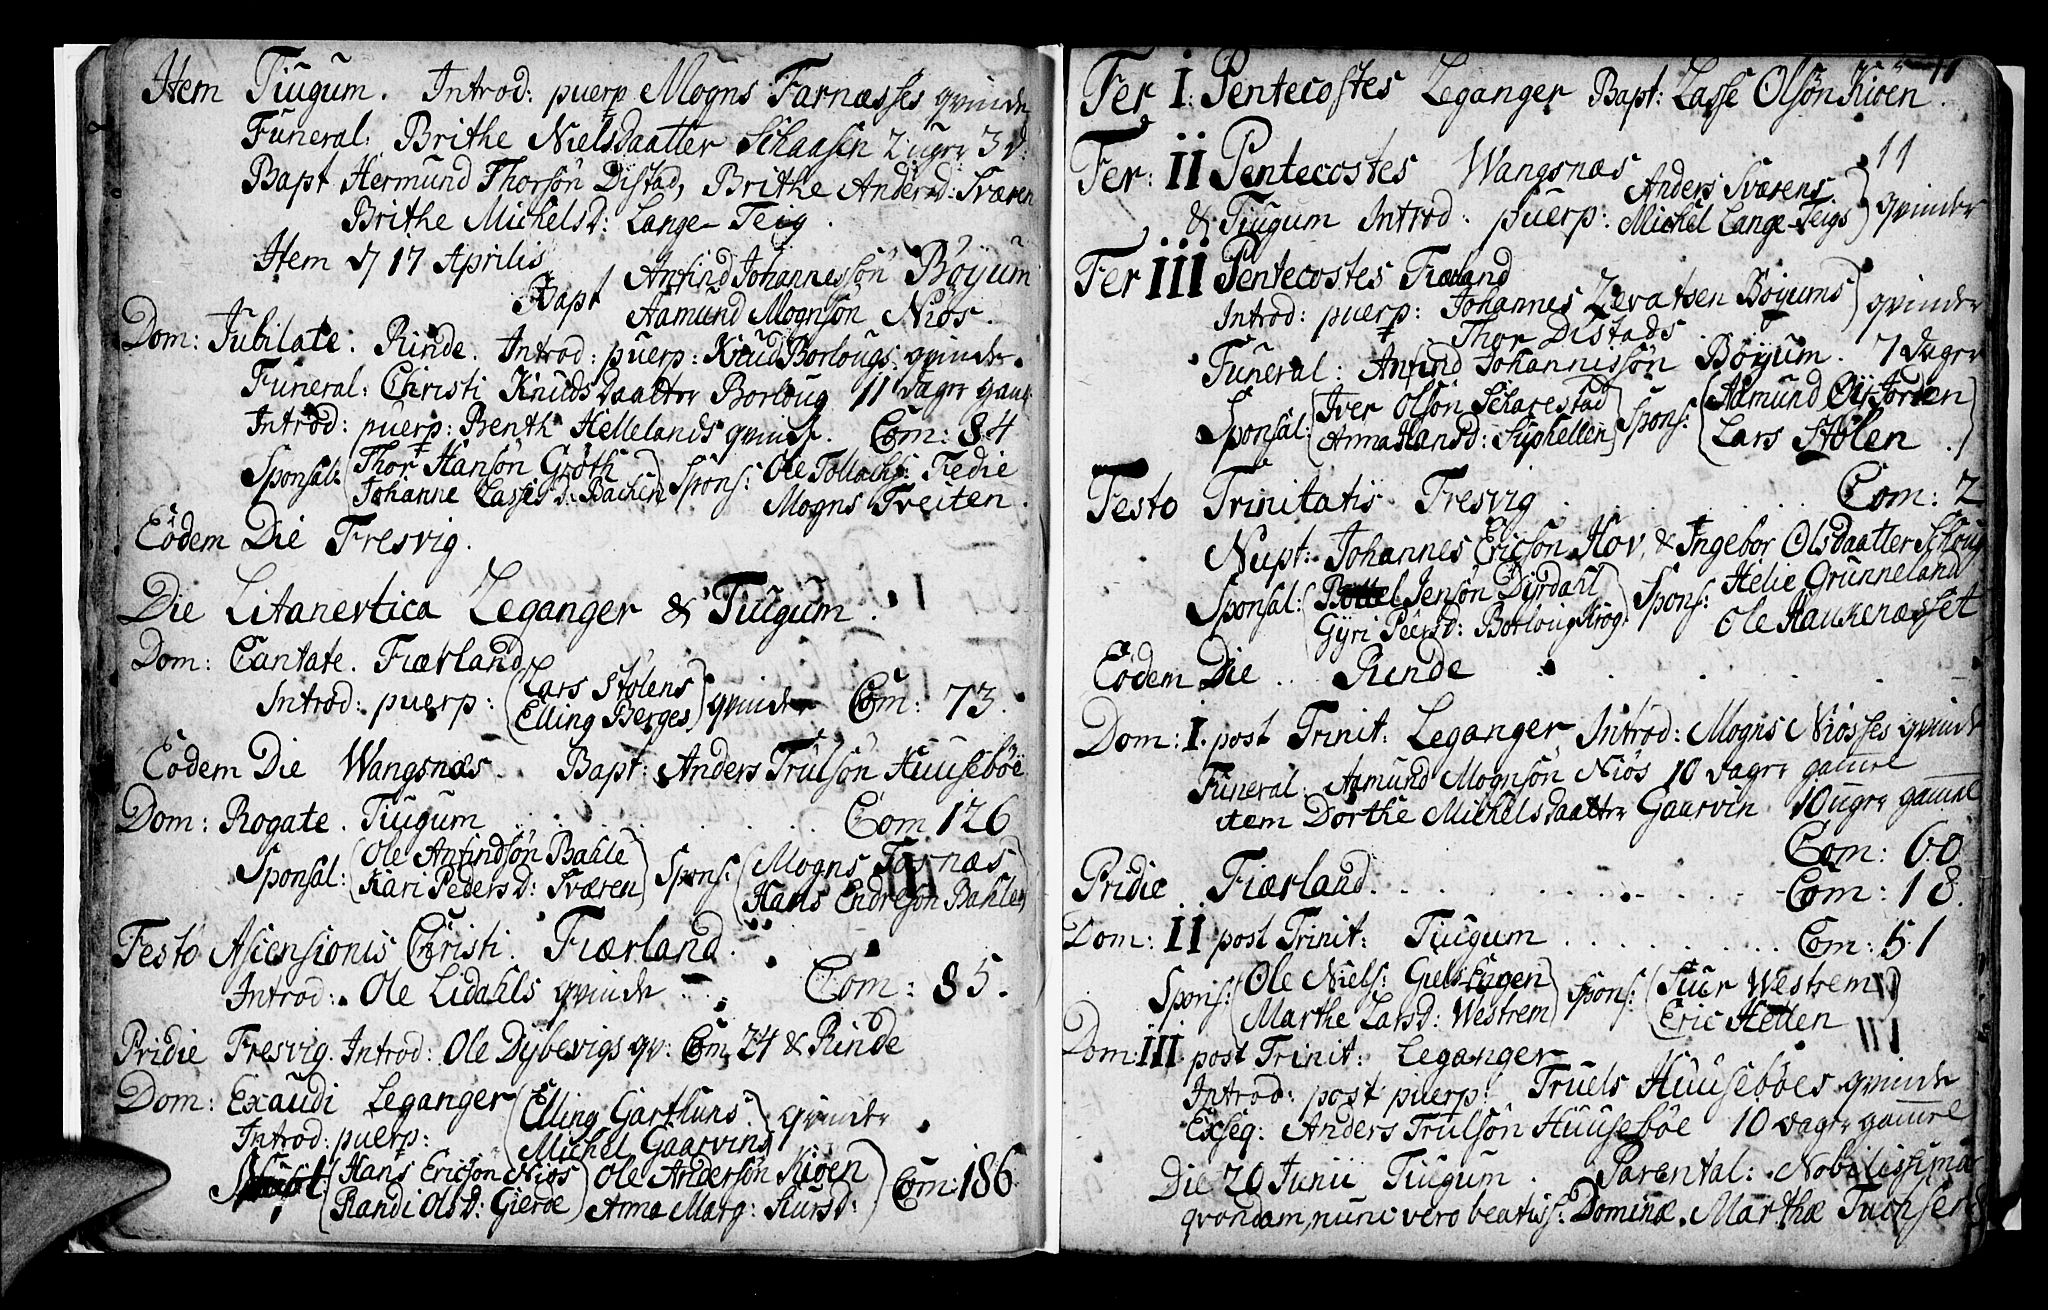 Item Tiugum. Introd: puerp Mogns Farnæsses qvinde
Funeral: Brithe Nielsdaatter Schaasen 2 uger 3 d:
Bapt Hermund Thorsön Distad, Brithe Andersd: Sværen
Brithe Michelsd: Lange-Teig.
Item d 17 Aprilis
Bapt Anfind Johannessön Böÿum
Aamund Mognsön Niös.
Dom: Jubilate. Rinde. Introd: puerp: Knud Borlougs qvinde.
Funeral: Christi Knudsdaatter Borloug 11 dager gaml
Introd: puerp: Benth Hellelands qvinde. Com: 84
Sponsal: (Thor Hansön Gröth
Johanne Lassesd: Bachen) Spons: Ole Tollachs: Tedie
Mogns Treiten.
Eodem Die Fresvig.
Die Litanevtica Leganger & Tiugum.
Dom: Cantate. Fiærland
Introd: puerp: (Lars Stölens
Elling Berges) qvinder Com: 73.
Eodem Die Wangsnæs. Bapt: Anders Trulsön Huuseböe
Dom: Rogate. Tiugum . . . . Com 126
Sponsal: (Ole Anfindsön Bahle
Kari Pedersd: Sværen) Spons: (Mogns Farnæs
Hans Endresön Bahle)
Festo Ascensionis Christi. Fiærland.
Introd: Ole Lidahls qvinde . . . Com: 85.
Pridie Fresvig. Introd: Ole Dÿbevigs qv: Com 24 & Rinde
Dom: Exaudi Leganger
Introd: puerp: (Elling Gartluns.
Michel Gaarvins) qvinder
Nupt: (Hans Ericsön Niös
Randi Olsd: Gieroe) Ole Andersön Kioen
Anna Marg: Siursd:) Com: 186
11
Fer I: Pentecostes Leganger Bapt: Lasse Olsön Kioen.
Fer: II Pentecostes Wangsnæs 11
& Tiugum Introd: puerp: Anders Sværens
Michel Lange-Teigs) qvinder
Fer III Pentecostes Fiærland
Introd: puerp: Johannes Zevatsen Böÿums
Thor Distads) qvinder
Funeral: Anfind Johannissön Böÿum. 7 dager
Sponsal: (Iver Olsön Scharestad
Anna Hansd: Suphellen) Spons: (Aamund Öÿjorden
Lars Stölen.)
Festo Trinitatis Fresvig . . . . Com: 2
Nupt: Johannes Ericsön Hov, & Ingebor Olsdaatter Schoug
Sponsal: (Bottel Jensön Dÿrdahl
Gÿri Peersd: Borloug Krog) Spons: Helie Grünneland
Ole Haukenæsset
Eodem Die . . Rinde
Dom: I. post Trinit: Leganger Introd: Mogns Niösses qvinde
Funeral: Aamund Mognsön Niös 10 dager gamel
item Dorthe Michelsdaatter Gaarvin 10 uger gamel
Com: 60
Pridie Fiærland. . . . . Com: 18.
Dom: II post Trinit: Tiugum . . . . Com: 51
Spons: (Ole Niels: Giels-Eygen
Marthe Larsd: Westrem) Spons: (Siur Westrem
Eric Hetlen)
Dom: III. post Trinit: Leganger
Introd: post puerp: Truels Huuseböes qvinde
Exseq: Anders Trulsön Huuseböe 10 dager gamel
Die 20 Junii Tiugum. Parental: Nobilissimæ
qvondam, nunc vero beatiss: Dominæ. Marthæ